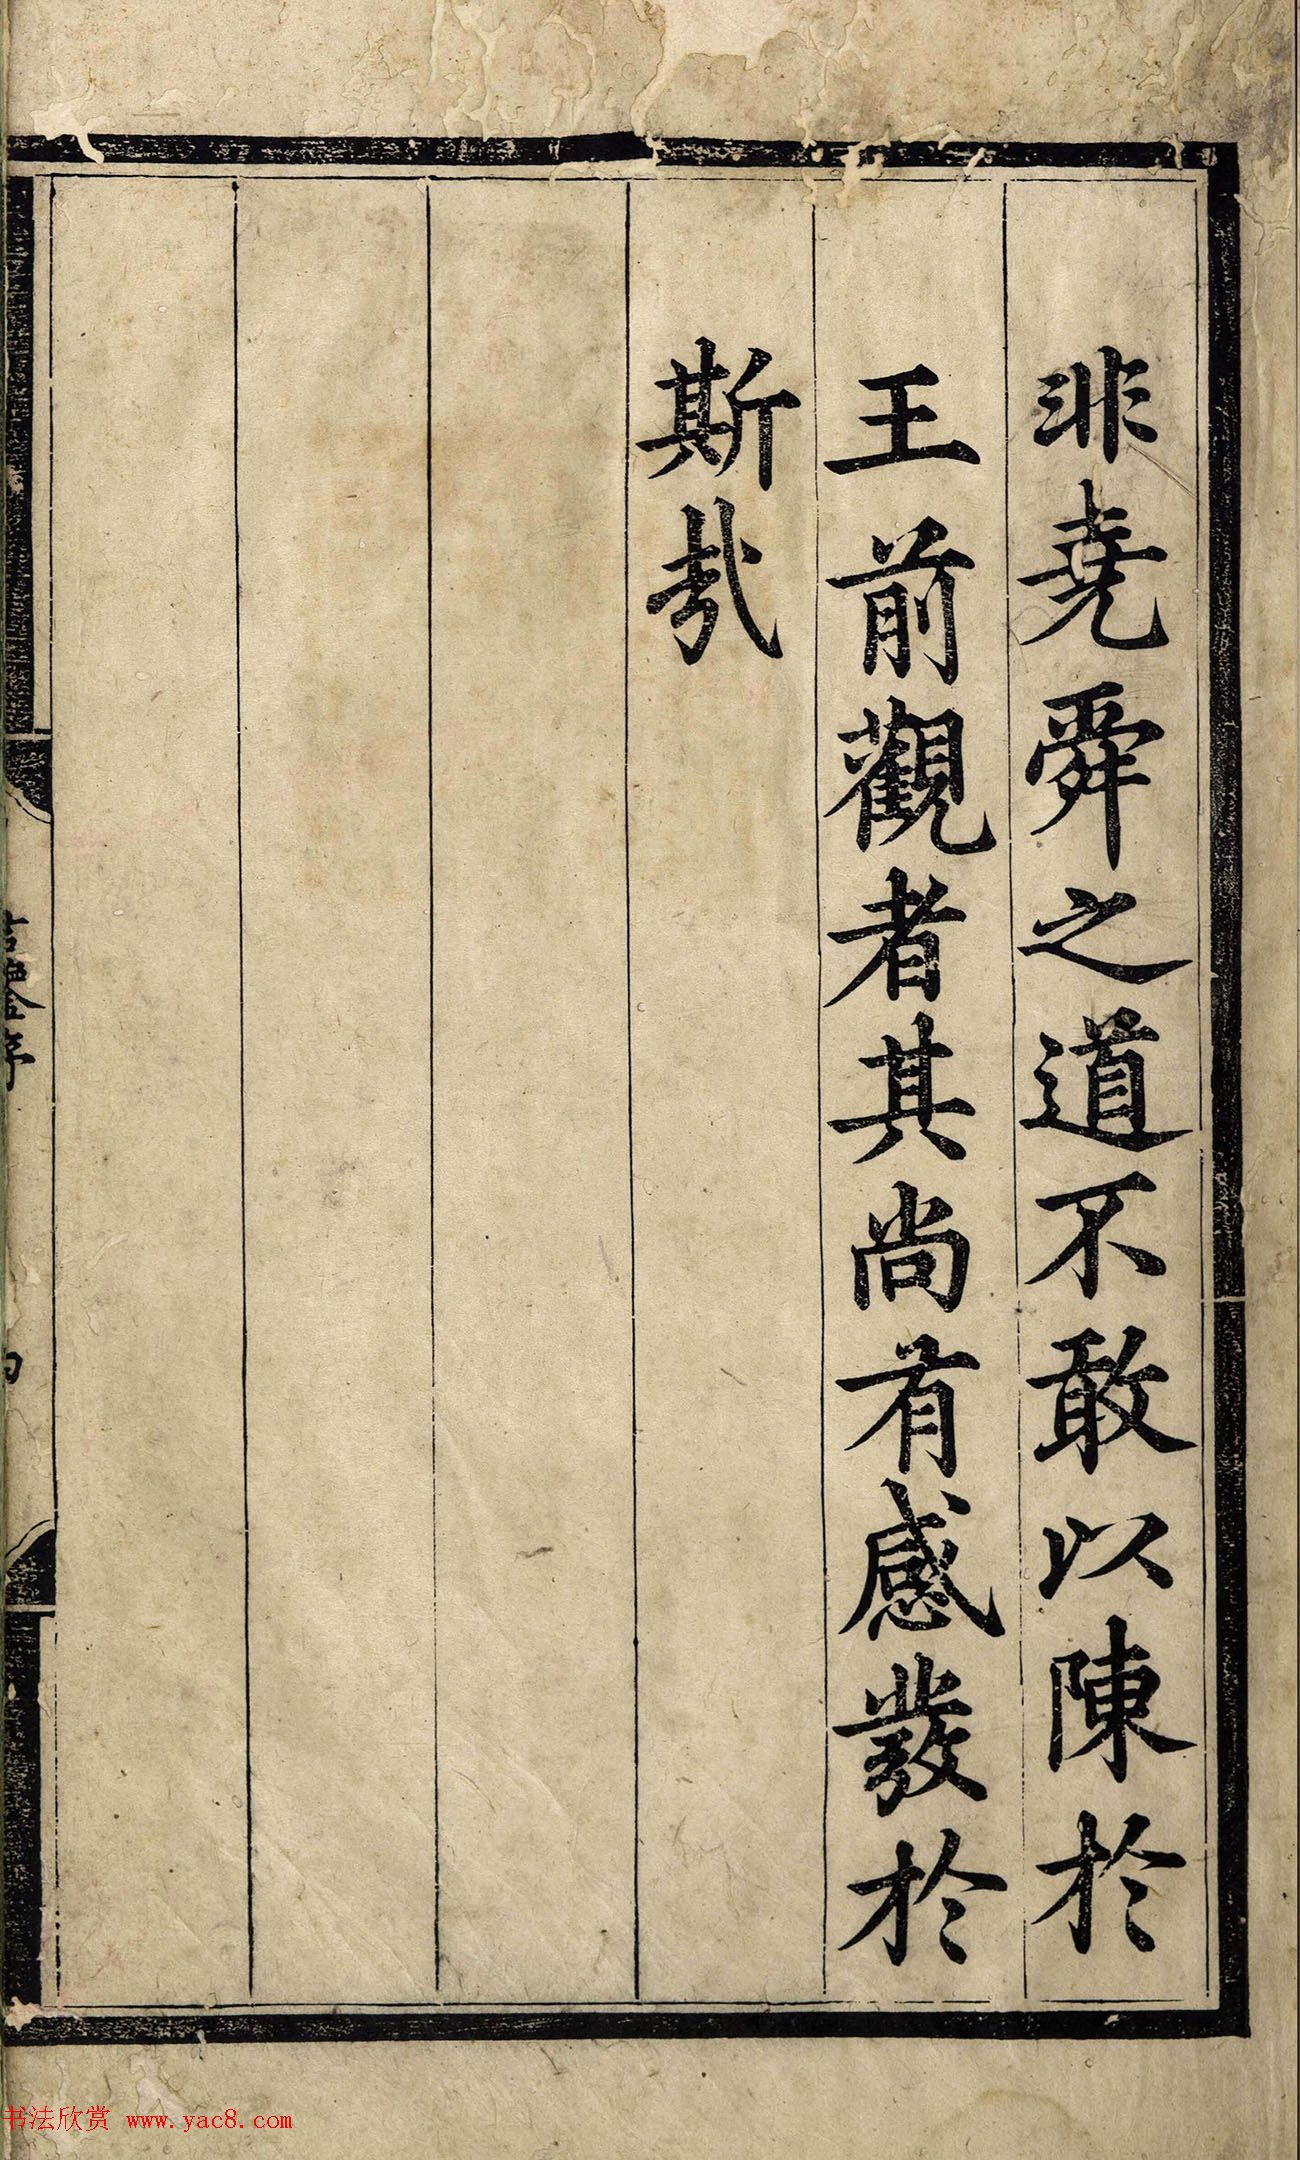 非堯舜之道不敢以陳於
王前觀者其尚有感發於
斯哉
书法欣赏 www.yac8.com